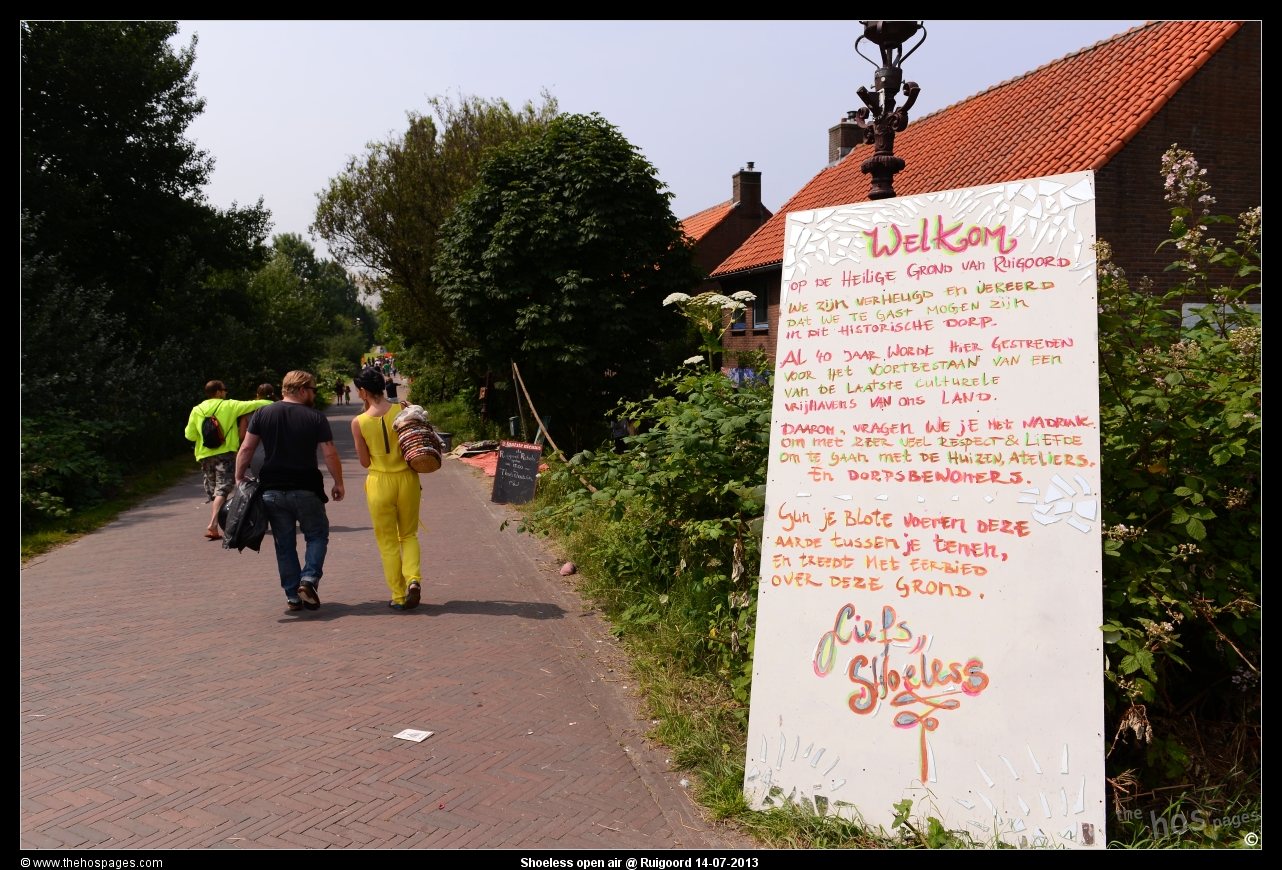 Welkom
op de Heilige Grond van Ruigoord
We zijn verheugd en vereerd
dat we te gast mogen zijn
in dit historische dorp.
Al 40 jaar wordt hier gestreden
voor het voortbestaan van een
van de laatste culturele
vrijhavens van ons land.
Daarom, vragen we je met nadruk
om met zeer veel respect & liefde
om te gaan met de huizen, ateliers.
en dorpsbewoners.
Gun je blote voeren deze
aarde tussen je tenen,
en treedt met eerbied
over deze grond.
Liefs,
Shoeless
the hos pages
©
© www.thehospages.com
Shoeless open air @ Ruigoord 14-07-2013